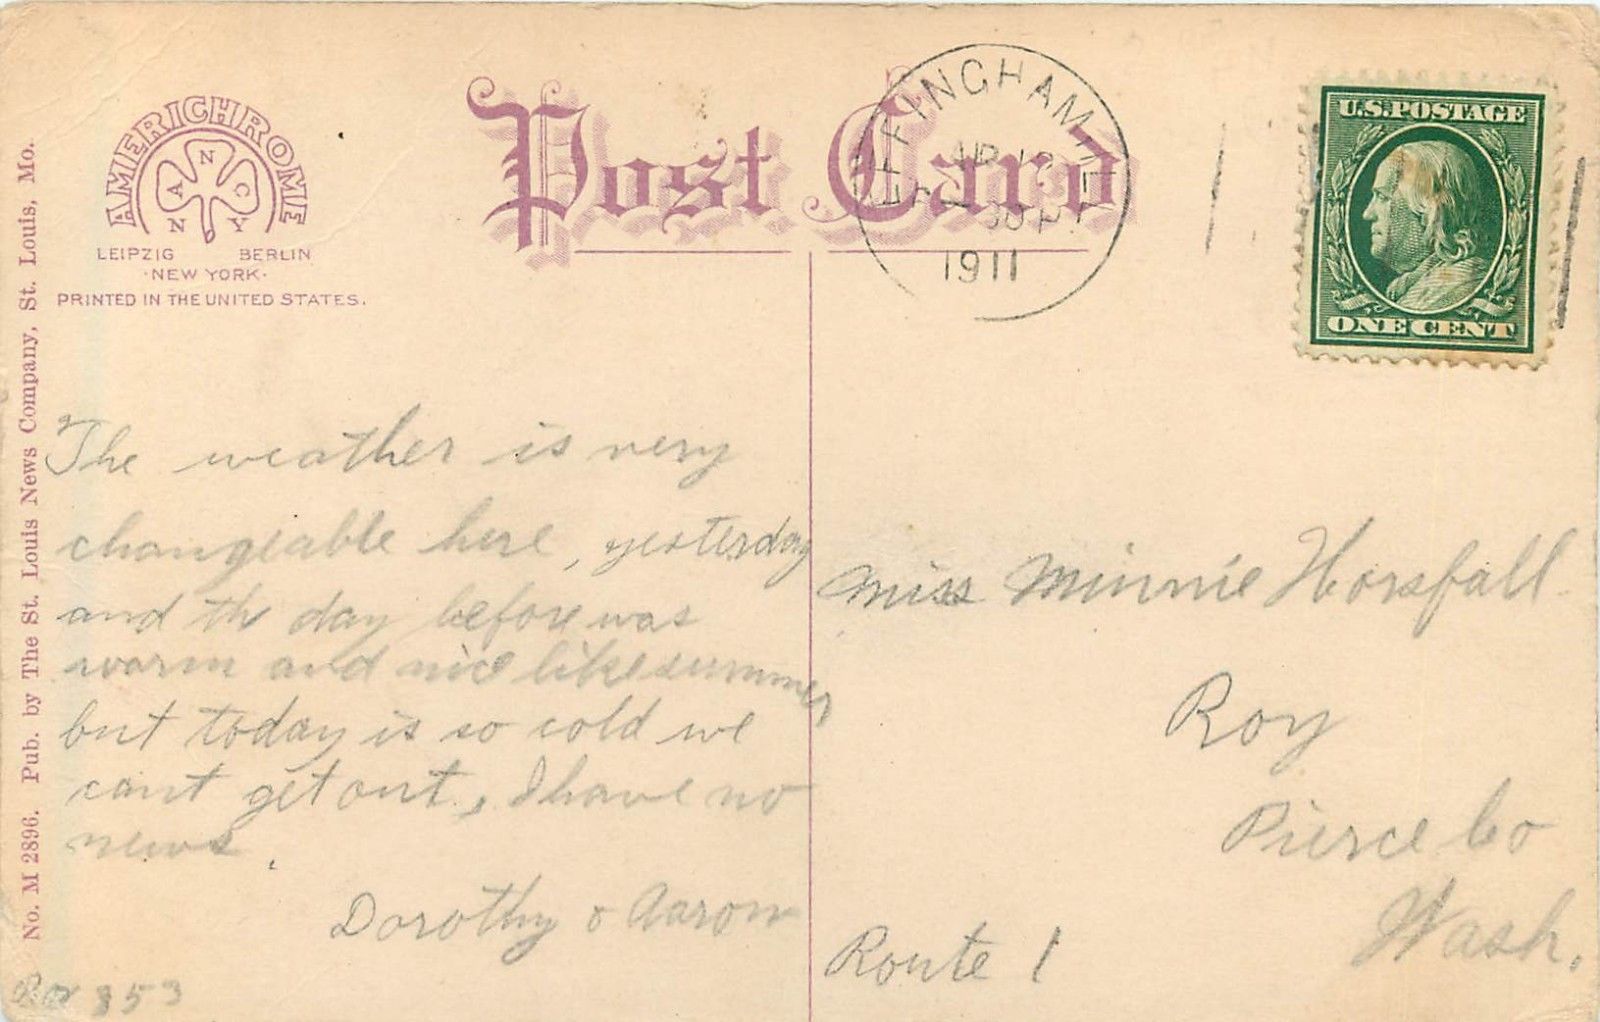 AMERICHROME
NANCY
LEIPZIG BERLIN
·NEW YORK·
PRINTED IN THE UNITED STATES.
Post Card
EFFINGHAM ILL
AP
1911
U.S. POSTAGE
ONE CENT
No. M 2896. Pub. by The St. Louis News Company, St. Louis, Mo.
The weather is very
changeable here, yesterday
and th day before was
warm and nice like summer
but today is so cold we
cant get out, I have no
news.
Dorothy & Aaron
853
Miss Minnie Horsfall
Roy
Pierce Co
Wash.
Route 1